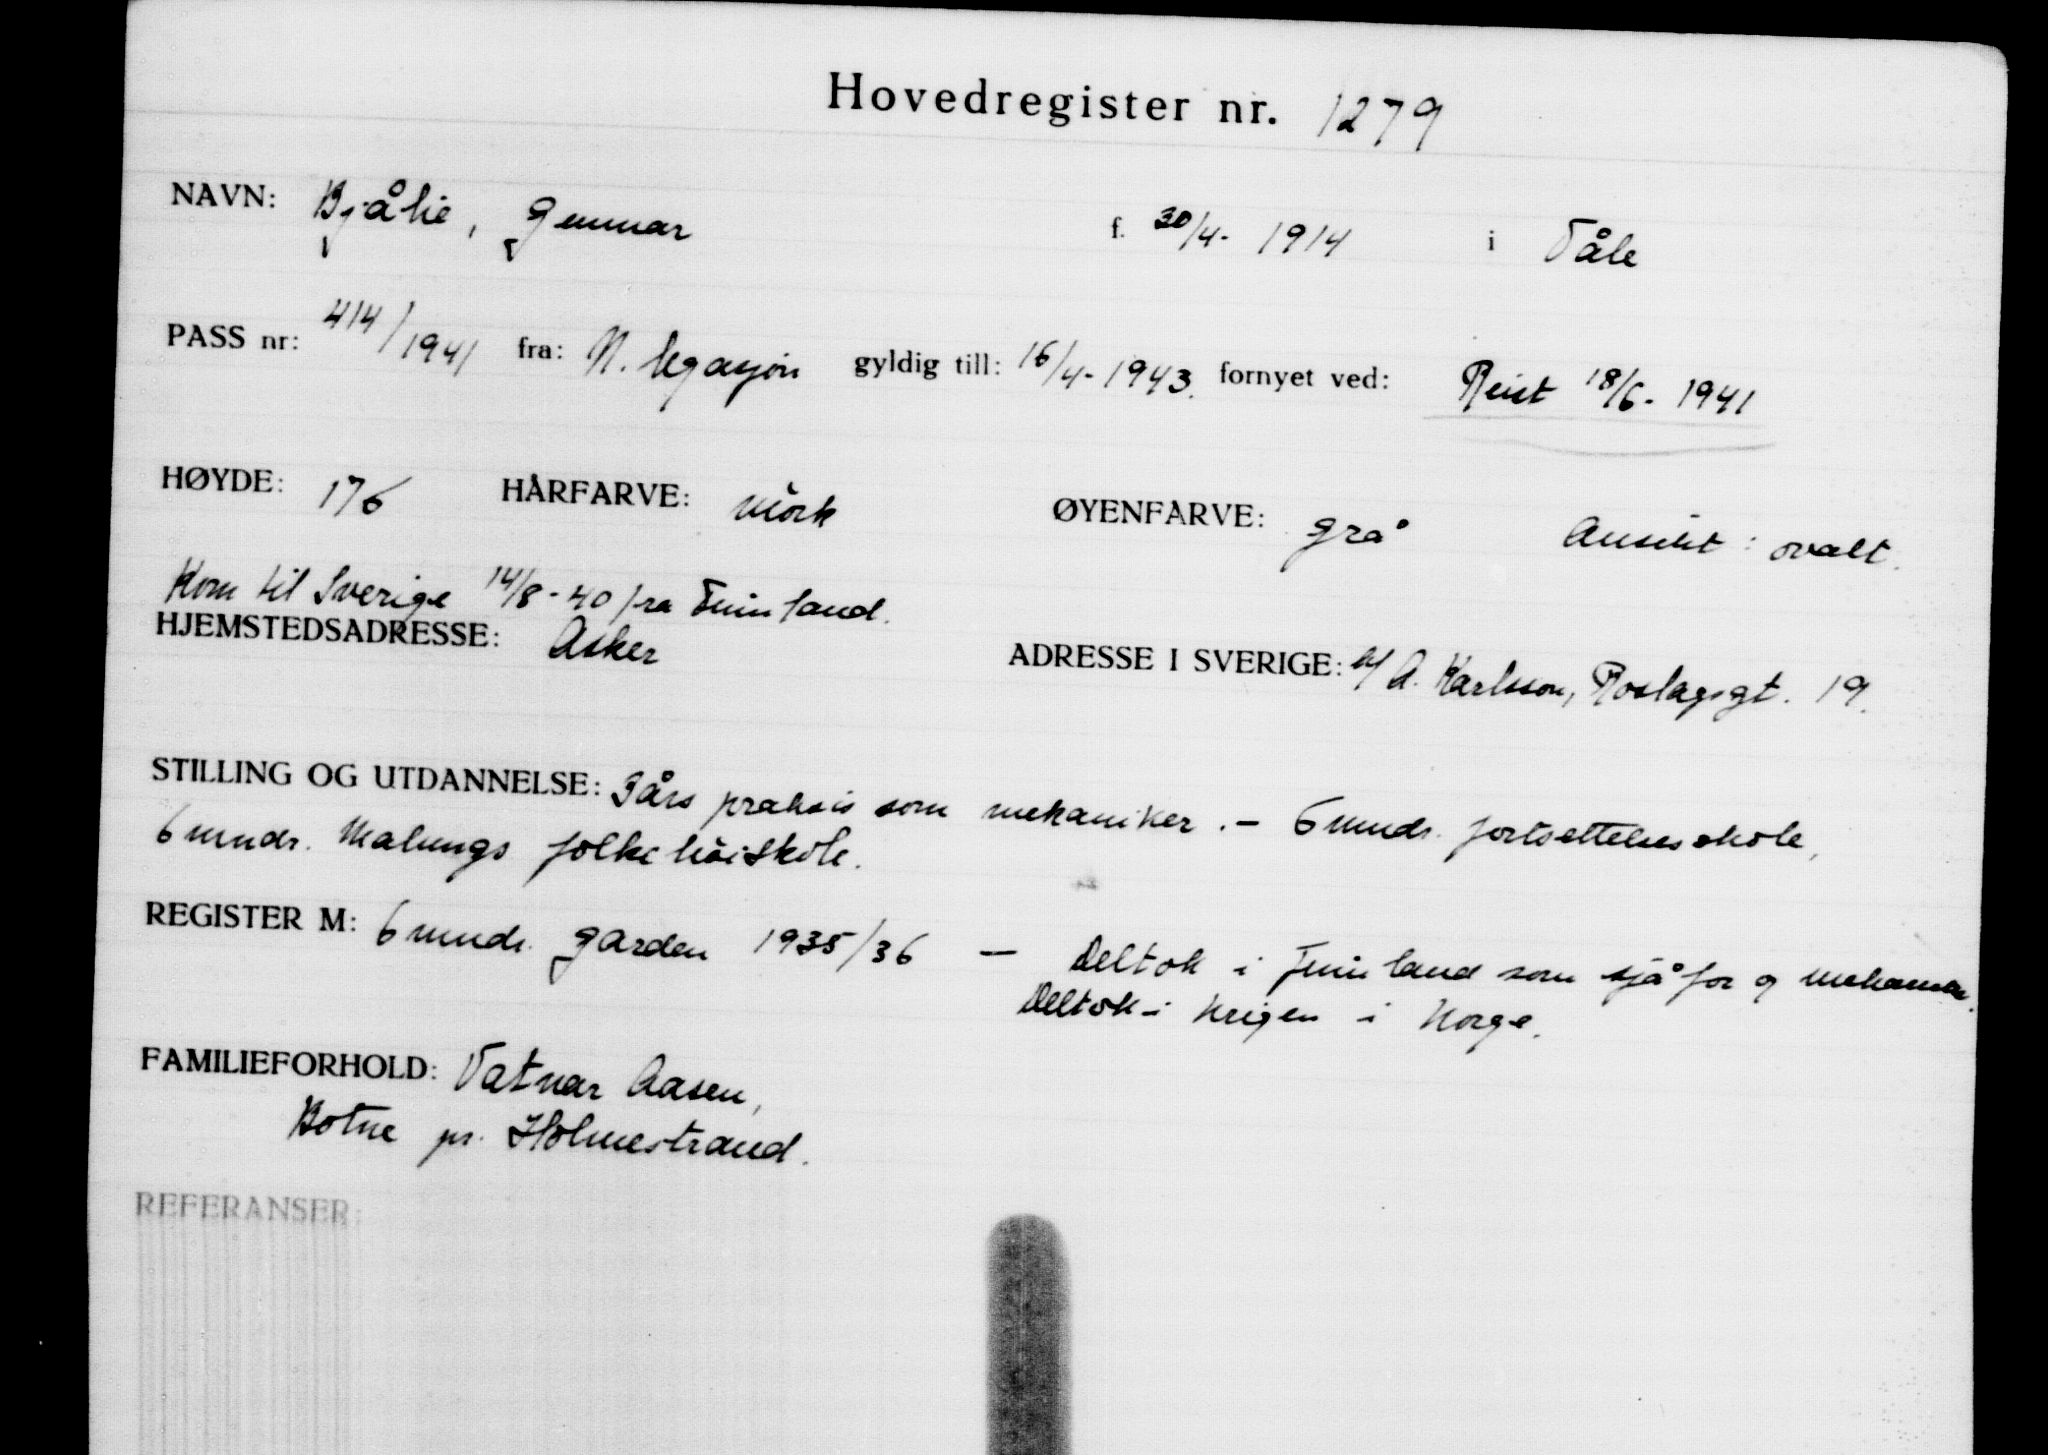 Hovedregister nr. 1279
NAVN: Bjålie, Gunnar f. 30/4- 1914 i Våle
PASS nr: 414/1941 fra: N. legasjon gyldig till: 16/4- 1943. fornyet ved: Reist 18/6- 1941
HØYDE: 176 HÅRFARVE: mörk ØYENFARVE: grå Ansikt: ovalt.
Kom til Sverige 14/8-40 fra Finnland.
HJEMSTEDSADRESSE: Asker ADRESSE I SVERIGE: A. Karlsson, Roslagsgt. 19.
STILLING OG UTDANNELSE: års praksis som mekaniker. - 6 mndr. fortsettelsesskole,
6 mndr. Malungs folkehöiskole.
REGISTER M: 6 mndr. garden 1935/36 - Deltok i Finnland som sjåfør og mekaniker.
Deltok i krigen i Norge.
FAMILIEFORHOLD: Vatnar Aasen,
Botne pr. Holmestrand.
REFERANSER: